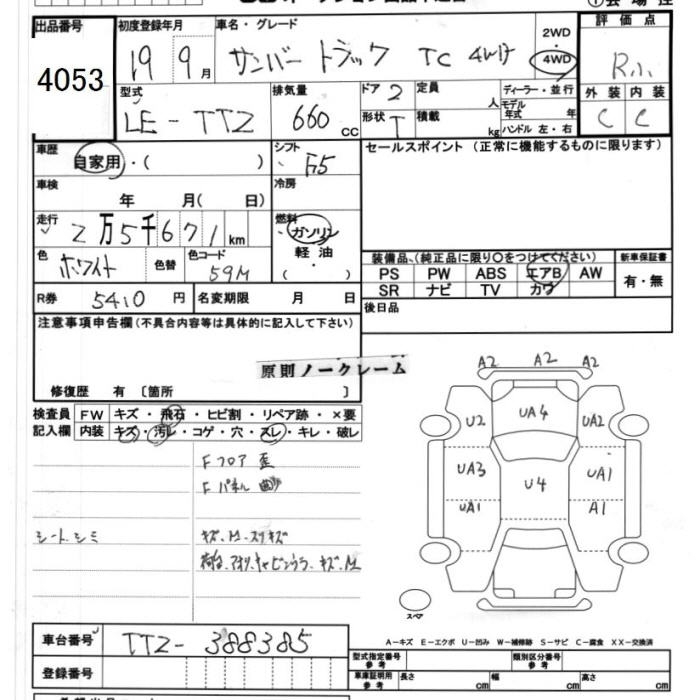 ①会場控
出品番号 初度登録年月 車名・グレード 2WD 評価点
4053 19 9月 サンバー トラック TC 4WD ・ 4WD R.
型式 排気量 ドア 2 定員 人 ディーラー・並行 外装 内装
LE-TT2 660 CC 形状 T 積載 kg モデル年式 年 C C
ハンドル 左・右
車歴 シフト セールスポイント (正常に機能するものに限ります)
自家用・( ) F5
車検 冷房
年 月( 日)
走行 2万5千671km 燃料 ガソリン
軽油
・( )
色 ホワイト 色替 色コード 59M
装備品、(純正品に限り○をつけてください) 新車保証書
PS PW ABS エアB AW 有・無
SR ナビ TV カワ
R券 5410 円 名変期限 月 日 後日品
注意事項申告欄(不具合内容等は具体的に記入して下さい)
原則ノークレーム
修復歴 有 〔箇所 〕
検査員 FW キズ・飛石・ヒビ割・リペア跡・×要
記入欄 内装 キズ・汚レ・コゲ・穴・スレ・キレ・破レ
Fフロア 歪
Fパネル 曲
シート.シミ キズ、M、スリキズ
荷台、アオリ、キャビンウラ、キズ、M
A2 A2 A2
U2 UA4 UA2
UA3 U4 UA1
UA1 A1
スペア
A-キズ E-エクボ U-凹み W-補修跡 S-サビ C-腐食 XX-交換済
車台番号 TT2-388385
型式指定番号 参考 類別区分番号 参考
登録番号 車庫証明用 参考 長さ cm 幅 cm 高さ cm